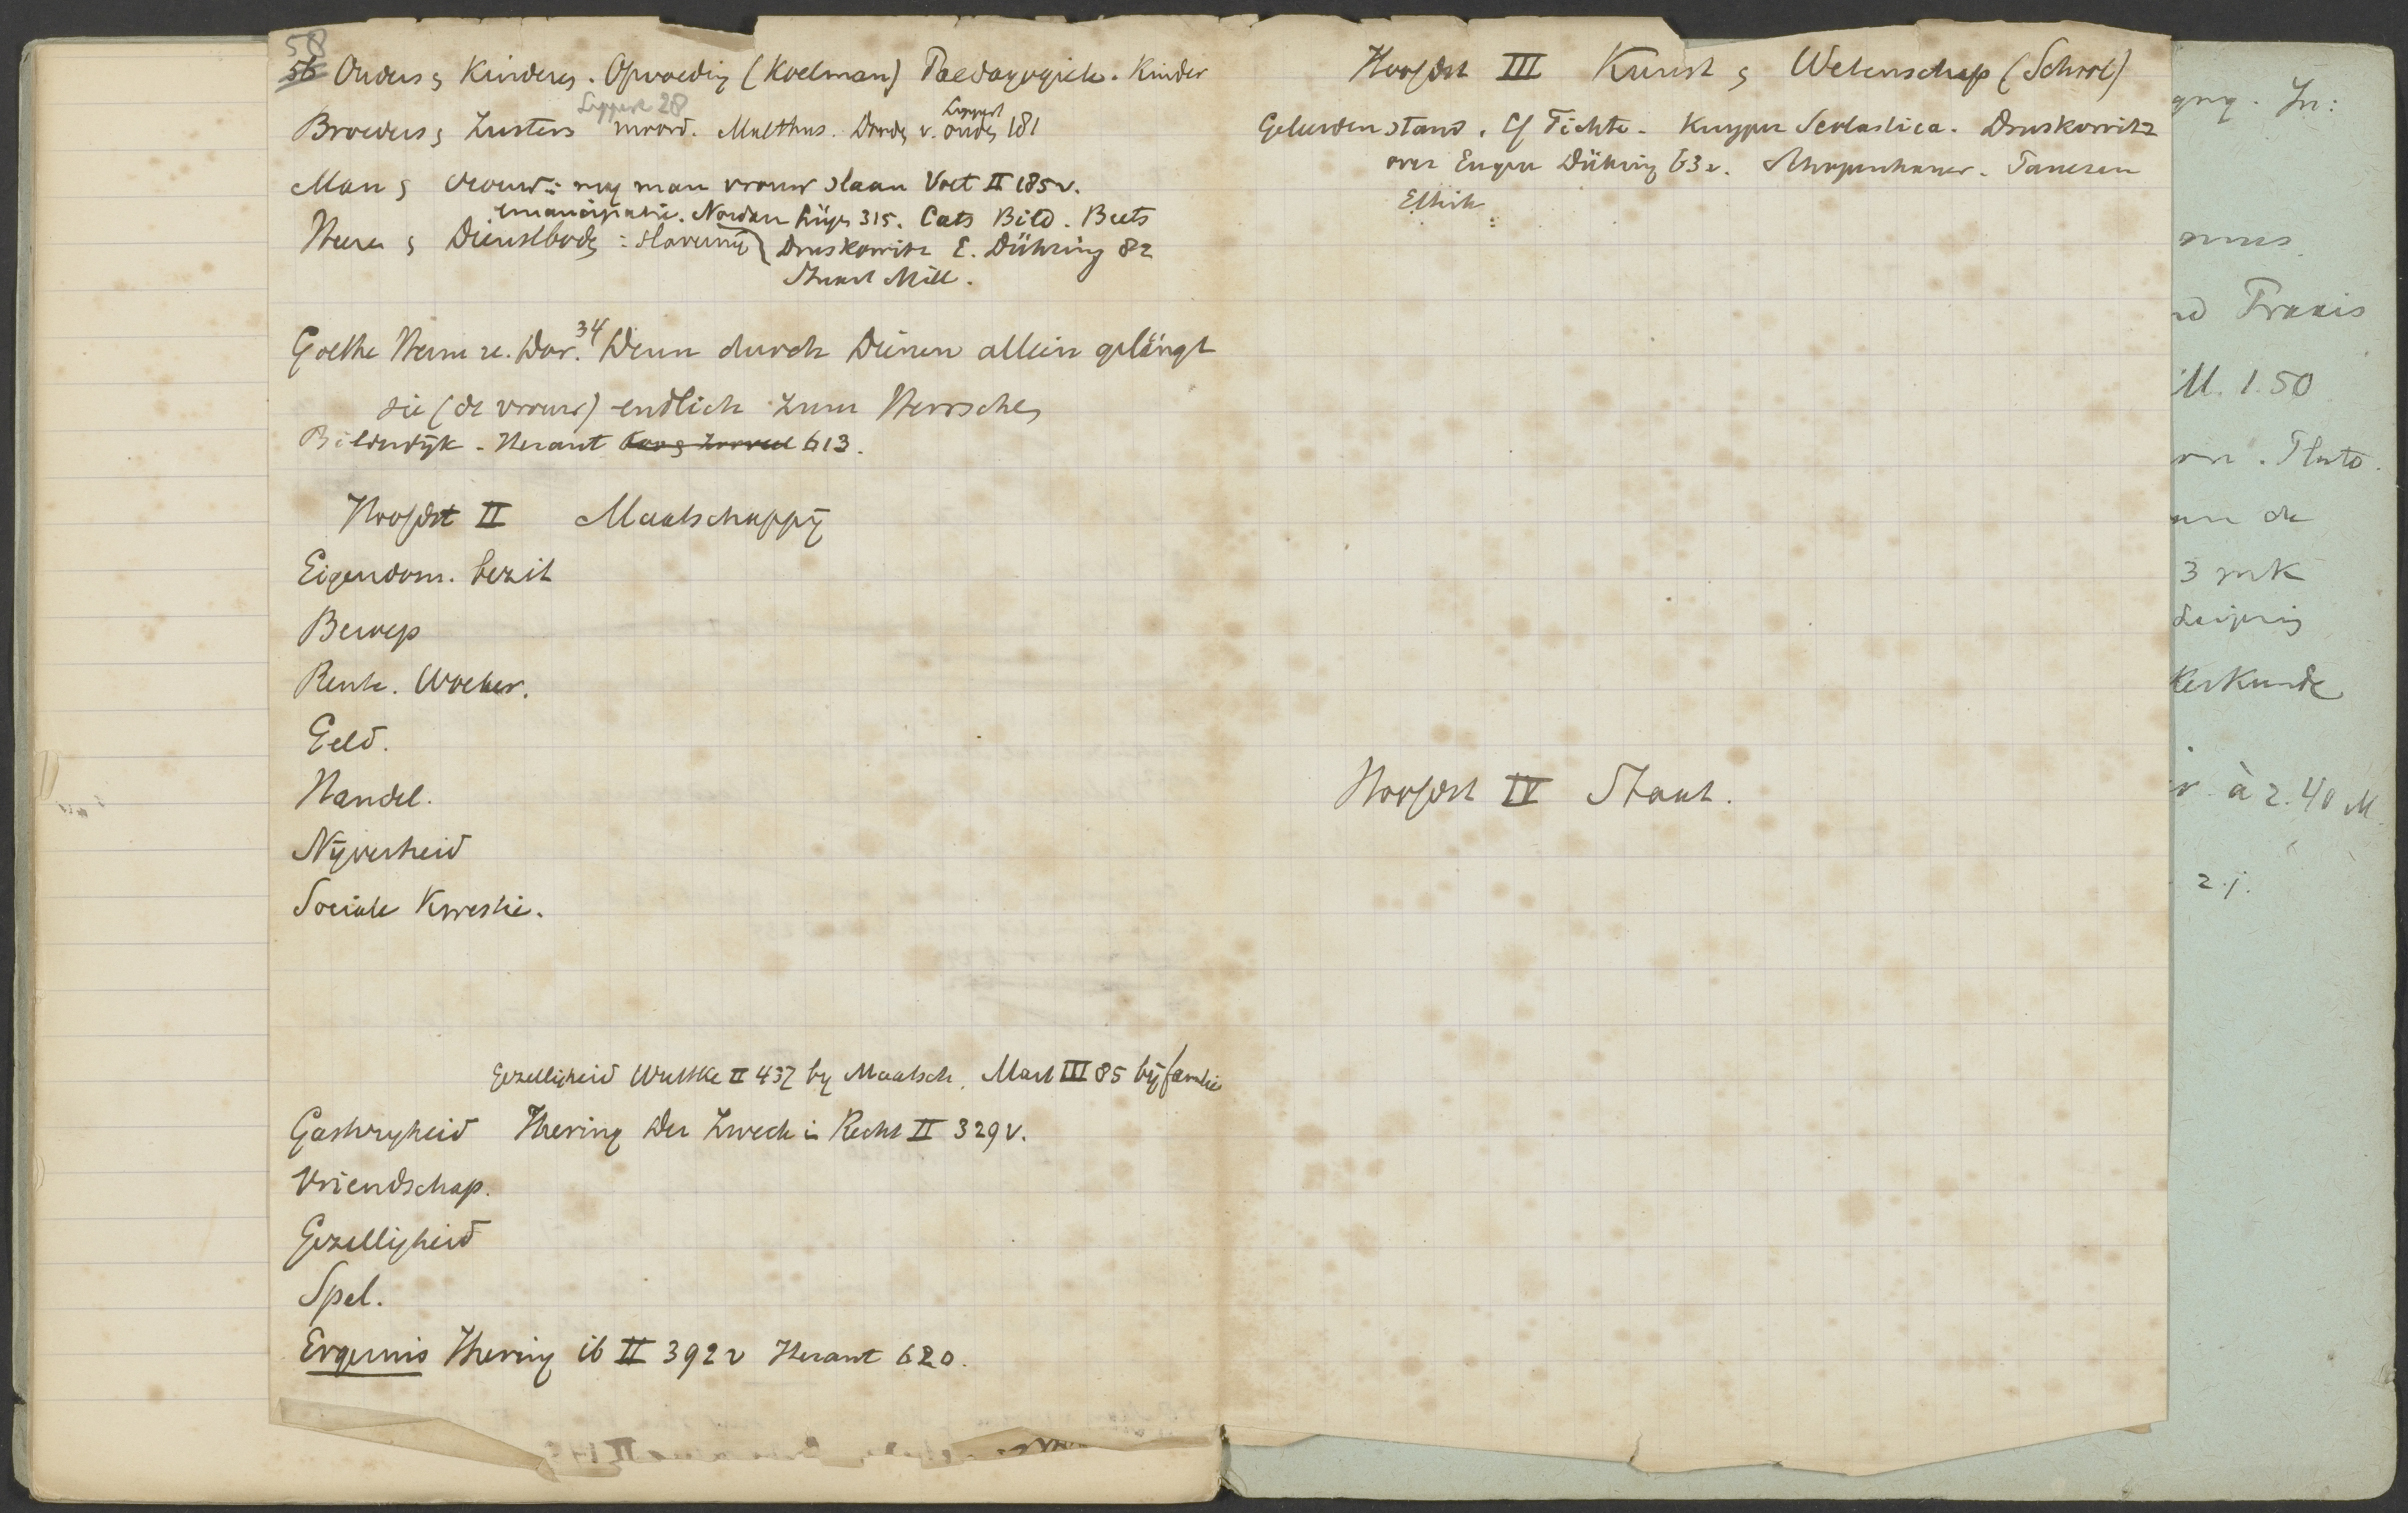 58
56 Ouders en Kinderen. Opvoeding (Koelman) Paedagogiek. Kinder
Lippert 28 Lippert
Broeders en Zusters moord. Malthus. Dooden v. ouden 181
Man en vrouw: mag man vrouw slaan Voet II 185v.
emancipatie. Nordau Lüge 315. Cats Bild. Beets
Heeren en Dienstboden: slavernij Druskowitz E. Dühring 82
Stuart Mill.
Goethe Herm u. Dor. 34 Denn durch Dienen allein gelängt
sie (de vrouw) endlich zum Herrschen
Bilderdijk - Heraut 613.
Hoofdst II Maatschappij
Eigendom. bezit
Beroep
Rente. Woeker.
Geld.
Handel.
Nijverheid
Sociale Kwestie.
Gezelligheid Wuttke II 437 by Maatsch. Mart III 85 bij familie
Gastvryheid Ihering Der Zweck i Recht II 329v.
Vriendschap.
Gezelligheid
Spel.
Ergernis Ihering ib II 392v Heraut 620.
Hoofdst III Kunst en Wetenschap (School)
Geleerdenstand. Cf Fichte. Kuyper Scolastica. Druskowitz
over Eugen Dühring 63v. Schopenhauer. Paulsen
Ethik
Hoofdst IV Staat.
In:
Praxis
M. 1.50
Pluto.
de
3 mk
Leipzig
kerkunde
à 2.40 M.
2.j.